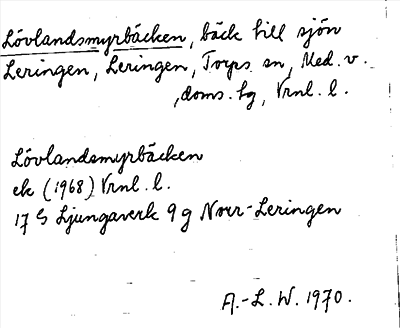 Lövlandsmyrbäcken, bäck till sjön
Leringen, Leringen, Torps sn, Med. v.
,doms. hg, Vrnl. l.
Lövlandsmyrbäcken
ek (1968) Vrnl. l.
17 G Ljungaverk 9 g Norr-Leringen
A.-L. W. 1970.